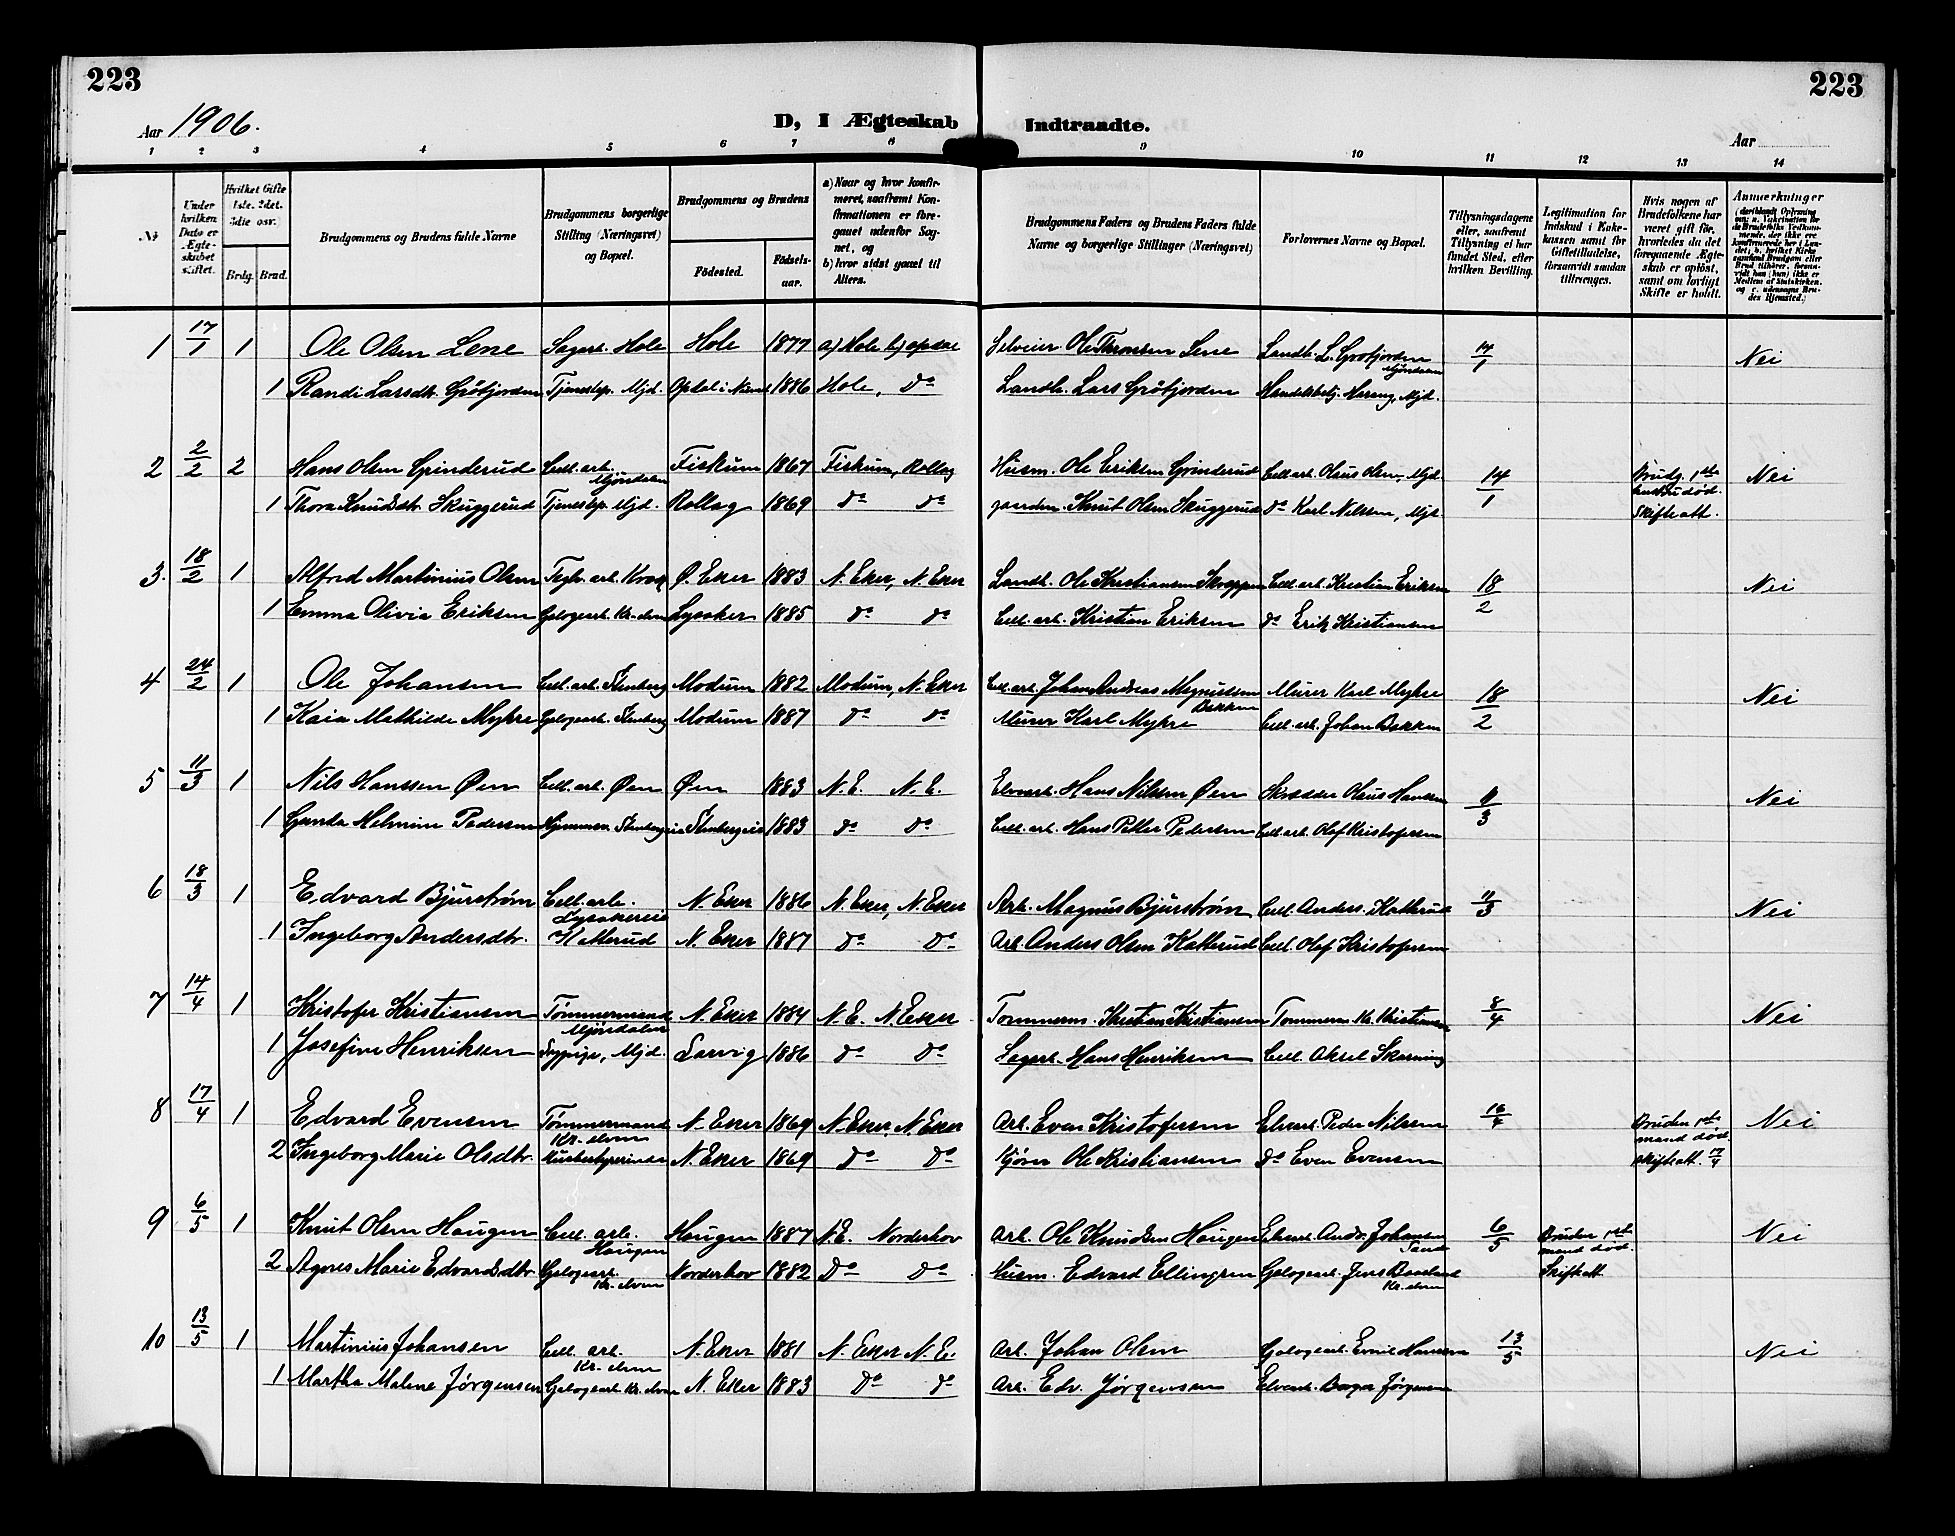 223
223
Aar 1906.
D, I Ægteskab Indtraadte.
Aar
1 2 3 4 5 6 7 8 9 10 11 12 13 14
Nr.
Under hvilken Dato er Ægteskabet stiftet.
Hvilket Gifte 1ste. 2det. 3die osv.
Brdg. Brud.
Brudgommens og Brudens fulde Navne
Brudgommens borgerlige Stilling (Næringsvei) og Bopæl.
Brudgommens og Brudens
Födested.
Födsels-aar.
a) Naar og hvor konfirmeret, saafremt Konfirmationen er foregaaet udenfor Sognet, og
b) hvor sidst gaaet til Alters.
Brudgommens Faders og Brudens Faders fulde Navne og borgerlige Stillinger (Næringsvei)
Forlovernes Navne og Bopæl.
Tillysningsdagene eller, saafremt Tillysning ei har fundet Sted, efter hvilken Bevilling.
Legitimation for Indskud i Enkekassen samt for Giftetilladelse, forsaavidt saadan tiltrænges.
Hvis nogen af Brudefolkene har været gift för, hvorledes da det foregaaende Ægteskab er oplöst, samt om lovligt Skifte er holdt.
Anmærkninger
1 17/1 1 Ole Olsen Lene Sagarb. Hole Hole 1877 a) Hole b) Opdal Selveier Ole Thronsen Lene Landh. L. Gröfjorden 14/1 Nei
Mjöndalen
1 Randi Larsdtr. Gröfjorden Tjenestep. Mjd. Opdal i Num. 1886 Hole, do Landh. Lars Gröfjorden Handelsbetj. Hareng, Mjd.
2 2/2 2 Hans Olsen Grinderud Cell. arb. Fiskum 1867 Fiskum, Rollag Husm. Ole Eriksen Grinderud Cell. arb. Olaus Olsen, Mjd. 14/1 Brudg. 1ste Nei
Mjöndalen hustru död.
1 Thora Knudsdtr. Skuggerud Tjenestep. Mjd. Rollag 1869 do do gaardm. Knut Olsen Skuggerud do Karl Nilssen, Mjd. Skifteatt.
3. 18/2 1 Alfred Martinius Olsen Teglv. arb. Ö. Eker 1883 N. Eker, N. Eker Landh. Ole Kristiansen Cell. arb. Kristian Eriksen 18/2 Nei
1 Emma Olivia Eriksen Gologearb. Kr. elven Lysaker 1885 do do Cell. arb. Kristian Eriksen do Erik Kristiansen
4 24/2 1 Ole Johansen Cell. arb. Stenberg Modum 1882 Modum, N. Eker Cell. arb. Johan Andreas Magnussen Murer Karl Myhre 18/2 Nei
Bakken
1 Kaia Mathilde Myhre Gologearb. Stenberg Modum 1887 do do Murer Karl Myhre Cell. arb. Johan Bakken
5 11/3 1 Nils Hanssen Øen Cell. arb. Øen Øen 1883 N. E. N. E. Elvearb. Hans Nilssen Øen Skrædder Olaus Hansen 11/3 Nei
1 Gunda Helmine Pedersen Hjemmev. Stenbergeie Stenbergeie 1883 do do Cell. arb. Hans Petter Pedersen Cell. arb. Olaf Kristofersen
6 18/3 1 Edvard Bjurström Cell. arb. N. Eker 1886 N. Eker, N. Eker Arb. Magnus Bjurström Cell. Anders Katterud 11/3 Nei
Lysakereie
1 Ingeborg Andersdtr. Katterud N. Eker 1887 do do Arb. Anders Olsen Katterud Cell. Olaf Kristofersen
7 14/4 1 Kristofer Kristiansen Tömmermand N. Eker 1884 N. E. N. Eker Tommerm. Kristian Kristiansen Tommerm. Kr. Kristiansen 8/4 Nei
Mjöndalen
1 Josefine Henriksen Sypige, Mjd. Larvig 1886 do do Sagarb. Hans Henriksen Cell. Aksel Skarning
8 17/4 1 Edvard Evensen Tömmermand N. Eker 1869 N. Eker, N. Eker Arb. Even Kristofersen Elvearb. Peder Nilssen 16/4 Bruden 1ste Nei
Kr. elven mand död.
2 Ingeborg Marie Olsdtr. Husbestyrerinde N. Eker 1869 do do Kjörer Ole Kristiansen do Even Evensen Skifteatt. 17/4
9 6/5 1 Knut Olsen Haugen Cell. arb. Haugen 1887 N. E. Norderhov Arb. Ole Knudsen Haugen Elvearb. Andr. Johansen 6/5 Bruden 1ste Nei
Haugen Sand mand död.
2 Agnes Marie Edvardsdtr. Gologearb. Norderhov 1882 do do Husm. Edvard Ellingsen Gologearb. Jens Skifteatt
Kr. elven Kr. elven
10 13/5 1 Martinius Johansen Cell. arb. N. Eker 1881 N. Eker N. E. Arb. Johan Olsen Gologearb. Emil Hansen 13/5 Nei
Kr. elven
1 Martha Malene Jörgensen Gologearb. Kr. elven N. Eker 1883 do do Arb. Edv. Jörgensen Elvearb. Jörgensen